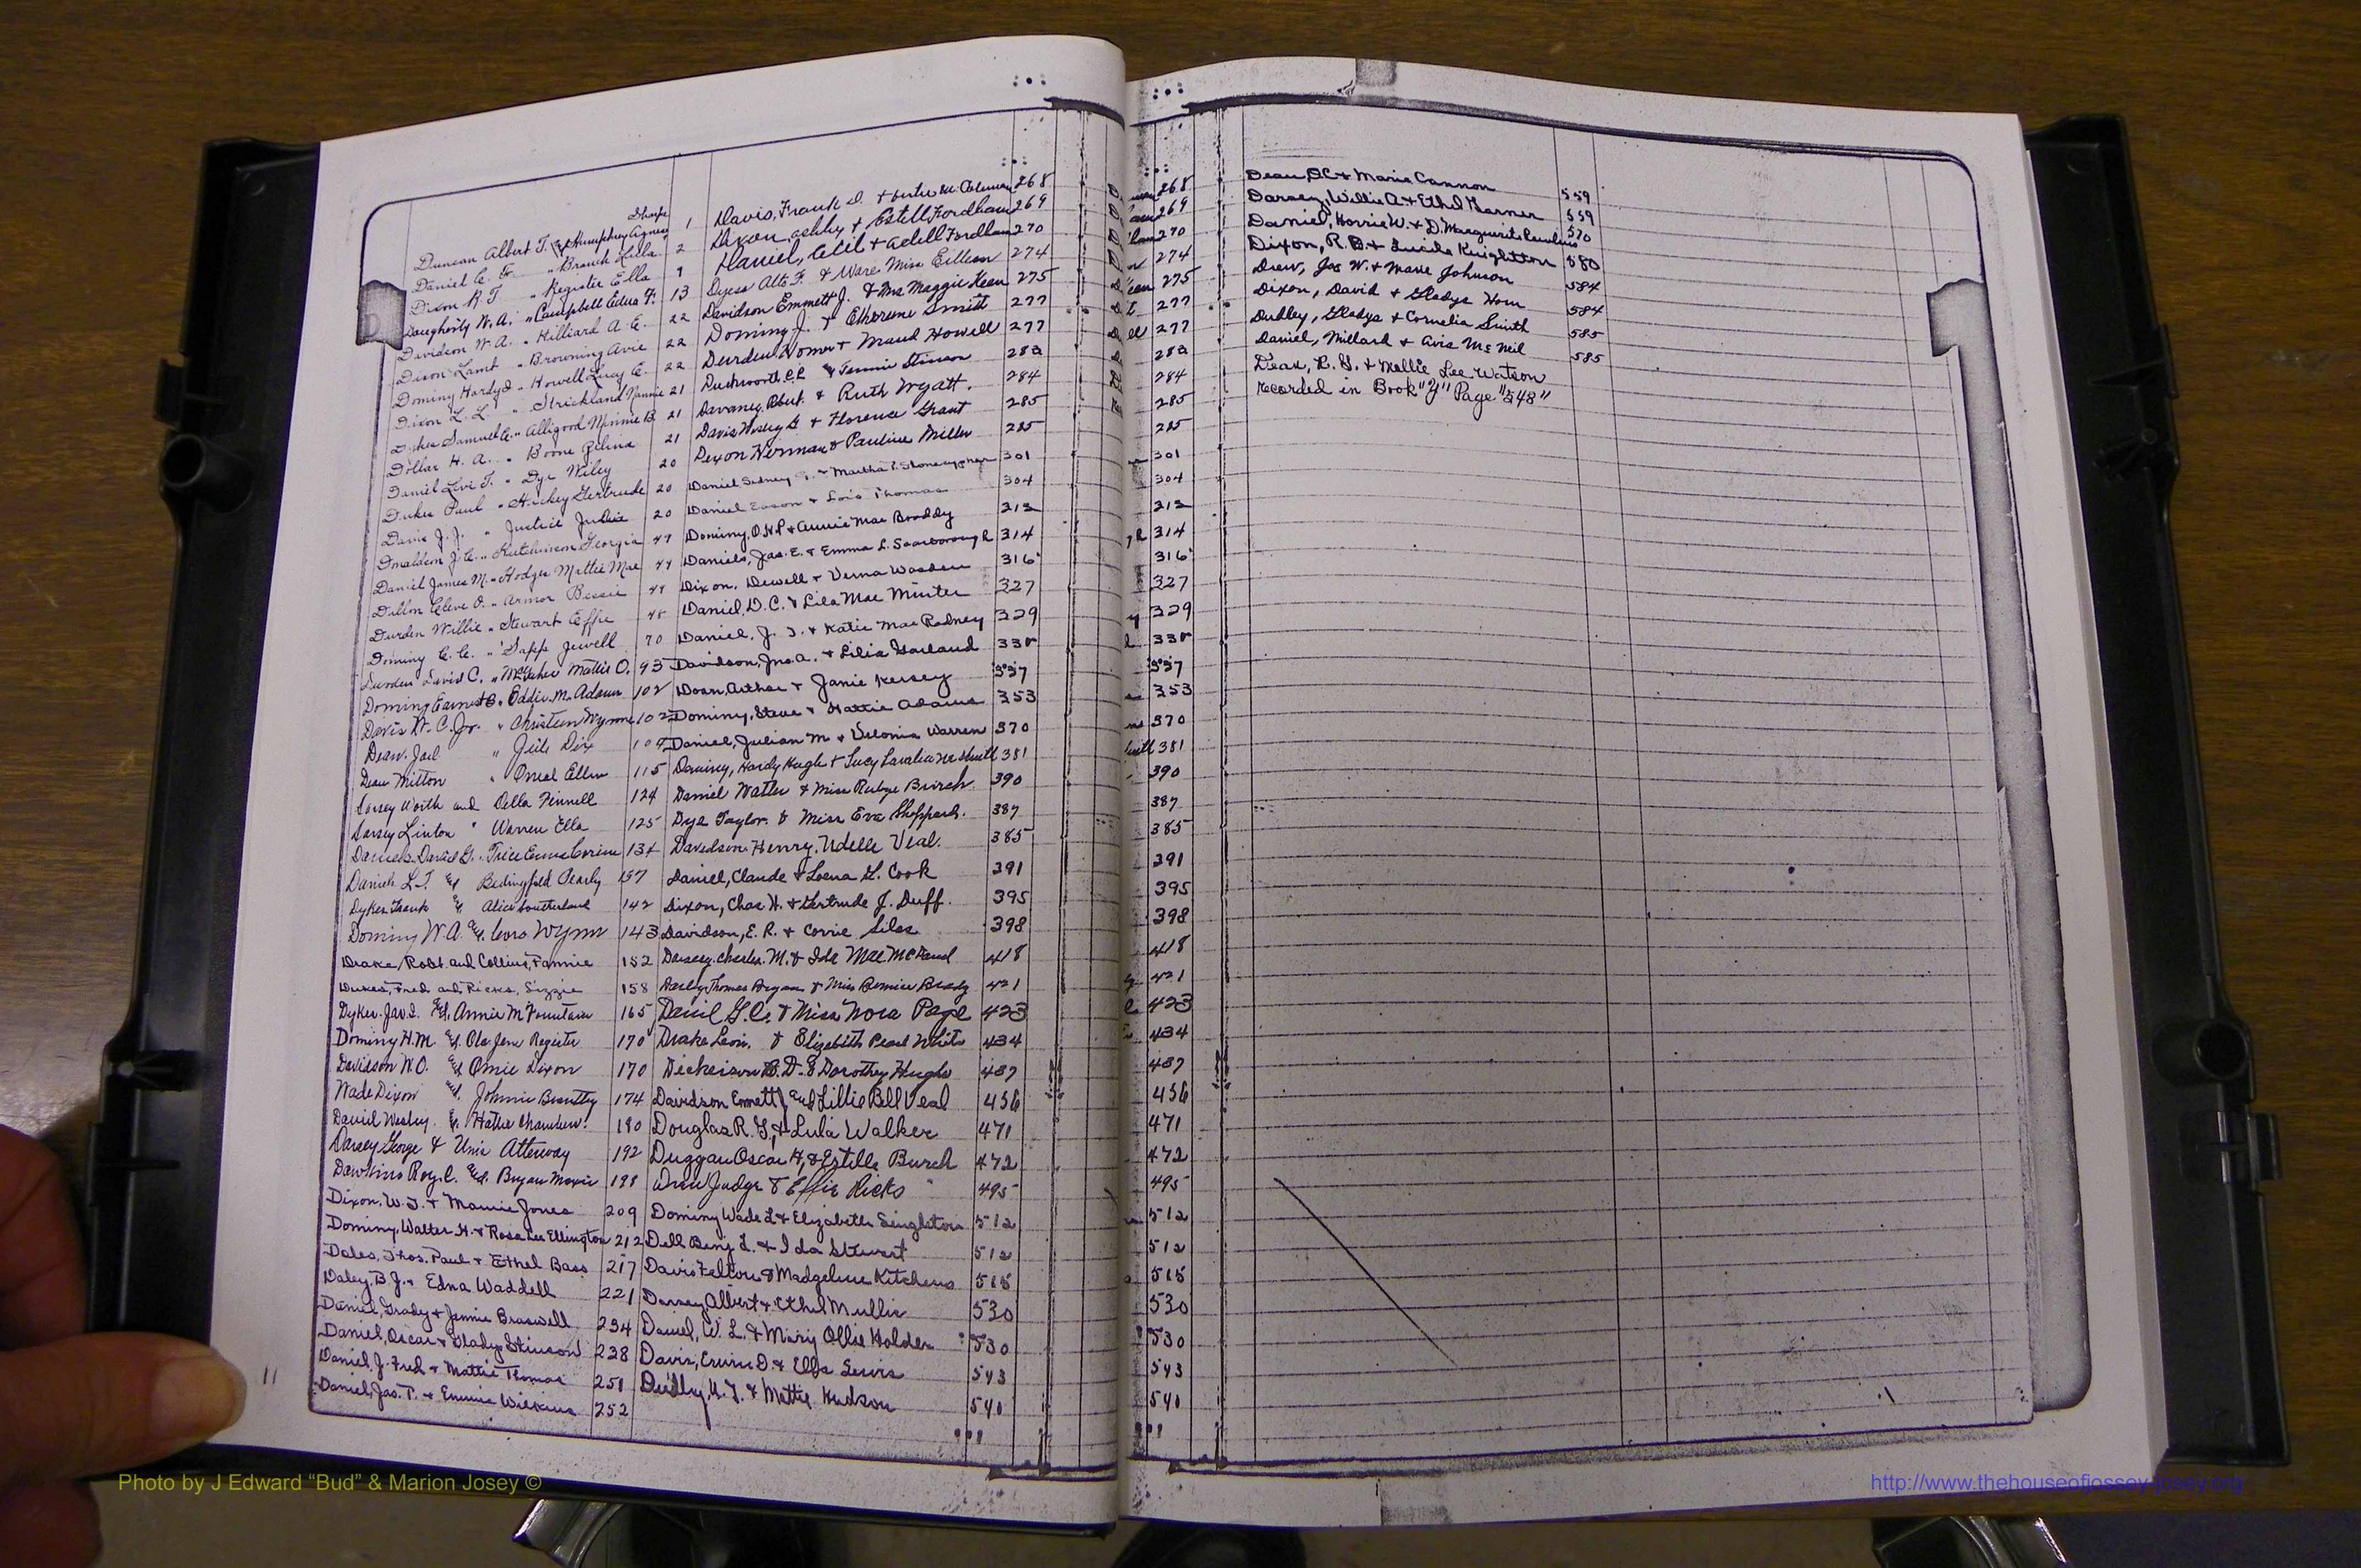 Sharpe
Duncan Albert T. & Humphrey Agnes 1
Daniel C. " Branch Lula 2
Dixon R. T " Register Ella 9
Daugherty W. A. " Campbell Edna F. 13
Davidson W. A. " Hilliard A. E. 22
Dixon Lamb " Browning Avie 22
Dominy Hardy " Howell Lucy E. 22
Dixon L. L " Strickland Nannie 21
Dykes Samuel C. " Alligood Minnie B. 21
Dollar H. A. " Boone Zelma 21
Daniel Levi T. " Dye Wiley 20
Dukes Paul " Hickey Gertrude 20
Davis J. J. " Justice Julia 20
Donaldson J. C. " Hutchinson Georgia 47
Daniel James M. " Hodges Mattie Mae 47
Dillon Cleve O. " Armor Bessie 47
Durden Willie " Stewart Effie 48
Dominy C. C. " Sapp Jewell 70
Durden David C. " Mattie O. 93
Dominy Earnest B. " Eddie M. Adams 102
Davis W. C. Jr. " Christeen Wynne 102
Drew Joel " Julie Dix 109
Dean Milton " Omel Ellen 115
Dorsey Worth and Della Finnell 124
Dorsey Linton " Warren Ella 125
Daniels Daniel G. " Trice Emma Corine 134
Daniels L. T. & Bedingfield Pearly 137
Dykes Frank & Alice Southerland 142
Dominy W. A. & Cora Wynn 143
Drake, Robt. and Collins, Fannie 152
Dukes, Fred and Ricks, Lizzie 158
Dykes Jas. S. & Annie M Fountain 165
Dominy H. M. & Ola Jene Register 170
Davidson W. O. & Omie Dixon 170
Wade Dixon & Johnnie Brantley 174
Daniel Wesley & Hattie Chambers 180
Darsey George & Unie Attenway 192
Dawkins Roy. C. & Bryan Moxie 198
Dixon, W. J. & Mamie Jones 209
Dominy, Walter H. & Rosa Lee Ellington 212
Dales, Thos. Paul & Ethel Bass 217
Daley, B J. & Edna Waddell 221
Daniel, Grady & Jennie Braswell 234
Daniel, Oscar & Gladys Stinson 238
Daniel, J. Fred & Mattie Thomas 251
Daniel, Jas. T. & Emmie Wilkins 252
11
Davis, Frank D. & M. Coleman 268
Dixon, Ashby & Estell Fordham 269
Daniel, Cecil & Adell Fordham 270
Dyess Alto F. & Ware Miss Eilleen 274
Davidson Emmett J. & Mrs Maggie Kean 275
Dominy J. & Etherene Smith 277
Durden Homer & Maud Howell 277
Duckworth C. L & Fannie Stinson 282
Davaney, Robert & Ruth Wyatt. 284
Davis Wesley G & Florence Grant 285
Dixon Herman & Pauline Miller 285
Daniel Sidney & Martha P. Stonecypher 301
Daniel Eason & Lois Thomas 304
Dominy, O. H. P & Annie Mae Braddy 312
Daniels, Jas. E. & Emma L. Scarborough 314
Dixon, Dewell & Verna Wooden 316
Daniel, D. C. & Lila Mae Minter 327
Daniel, J. J. & Katie Mae Radney 329
Davidson, Jno. A. & Lilia Garland 335
Doan, Arthur & Janie Kersey 337
Dominy, Steve & Hattie Adams 353
Daniel, Julian M. & Velonia Warren 370
Dominy, Hardy Hugh & Lucy Lavalia 381
Daniel Walter & Miss Rubye Burch. 390
Dye Taylor. & Miss Eva Sheppard. 387
Davidson Henry. Udelle Veal. 385
Daniel, Claude & Loena G. Cook 391
Dixon, Chas. H. & Gertrude J. Duff. 395
Davidson, E. R. & Corrie Silas 398
Dorsey, Charles. M. & Ida Mae McDaniel 418
Darley Thomas Bryan & Miss Bernice Brady 421
Daniel G. C. & Miss Nora Page 423
Drake Leon. & Elizabeth Pearl White 434
Dickerson B. D. & Dorothy Hughs 437
Davidson Emmett J and Lillie Bell Veal 456
Douglas R. G. & Lula Walker 471
Duggan Oscar H, & Estelle Burch 472
Drew Judge & Effie Ricks 495
Dominy Wade L & Elizabeth Singleton 512
Dell Benj L. & Ida Stewart 512
Davis Felton & Madgeline Kitchens 515
Dorsey, Albert & Ethel Mullis 530
Daniel, W. L. & Mary Ollie Holder 530
Davis, Ervin D. & Elba Lewis 543
Dudley, M. J. & Mattie Hudson 540
268
269
270
274
275
277
277
282
284
285
285
301
304
312
314
316
327
329
335
337
353
370
381
390
387
385
391
395
398
418
421
423
434
437
456
471
472
495
512
512
515
530
530
543
540
Dean, D. C & Marie Cannon 559
Darsey, Willie A & Ethel Garner 559
Daniel, Horrie W. & D. Marguerite 570
Dixon, R. B. & Lucile Knighton 580
Drew, Jas W. & Marie Johnson 584
Dixon, David & Gladys Horn 584
Dudley, Gladys & Cornelia Smith 585
Daniel, Millard & Avis McNeil 585
Dean, R. G. & Mollie Lee Watson
recorded in Book "Y" Page "548"
Photo by J Edward “Bud” & Marion Josey ©
http://www.thehouseofjossey-josey.org